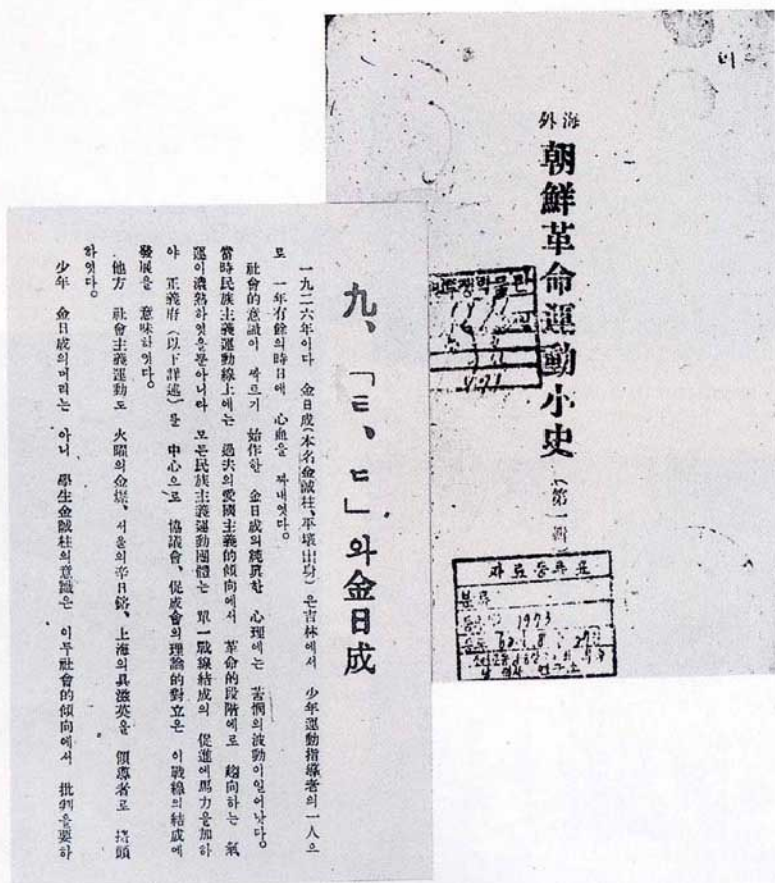 海外
朝鮮革命運動小史(第一輯)
자료등록표
분류
1973
九、「ㅌ、ㄷ」와金日成
一九二六年이다 金日成(本名金誠柱、平壤出身)은吉林에서 少年運動指導者의一人으
로 一年有餘의時日에 心血을 짜내엿다。
社會的意識이 싹트기 始作한 金日成의純眞한 心理에는 苦憫의波動이일어낫다。
當時民族主義運動線上에는 過去의愛國主義的傾向에서 革命的段階에로 趨向하는 氣
運이濃熟하엿을뿐아니라 모든民族主義運動團體는 單一戰線結成의 促進에馬力을加하
야 正義府(以下詳述)를 中心으로 協議會、促成會의理論的對立은 이戰線의結成에
發展을 意味하엿다。
他方 社會主義運動도 火曜의金燦、서울의辛日鎔、上海의具滋英을 領導者로 擡頭
하엿다。
少年 金日成의머리는 아니 學生金誠柱의意識은 이두社會的傾向에서 批判을要하